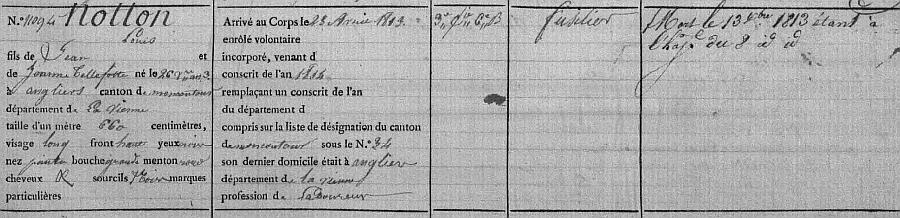 N.º 11094 Rotton
Louis
fils de Jean et
de Jeanne Tellefotte né le 26
à angliers canton de moncontour
département de La Vienne
taille d'un mètre 660 centimètres,
visage long front haut yeux noir
nez pointu bouche grande menton rond
cheveux & sourcils Noirs marques
particulières
Arrivé au Corps le 23 Avril 1813
enrôlé volontaire
incorporé, venant d
conscrit de l'an 1814
remplaçant un conscrit de l'an
du département d
compris sur la liste de désignation du canton
de moncontour sous le N.º 34
son dernier domicile était à anglier
département de la vienne
profession de Laboureur
3e 6e B
fusilier
Mort le 13 8bre 1813 étant à
l'hôp. du 8 id id